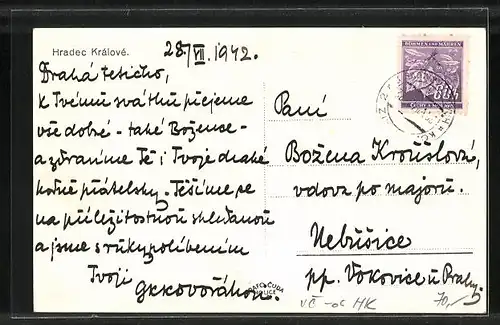 Hradec Králové.
28/VII. 1942.
Drahá tetičko,
k Tvému svátku přejeme
vše dobré - také Božence -
a zdravíme Tě i Tvoje drahé
přátelsky. Těšíme se
na příležitostnou
a jsme s rukypolíbením
Tvoji
Paní
Božena
vdova po majoru.
Nebušice
pp. Vokovice u Prahy
BÖHMEN UND MÄHREN
60 h
ČECHY A MORAVA
HK
70,-